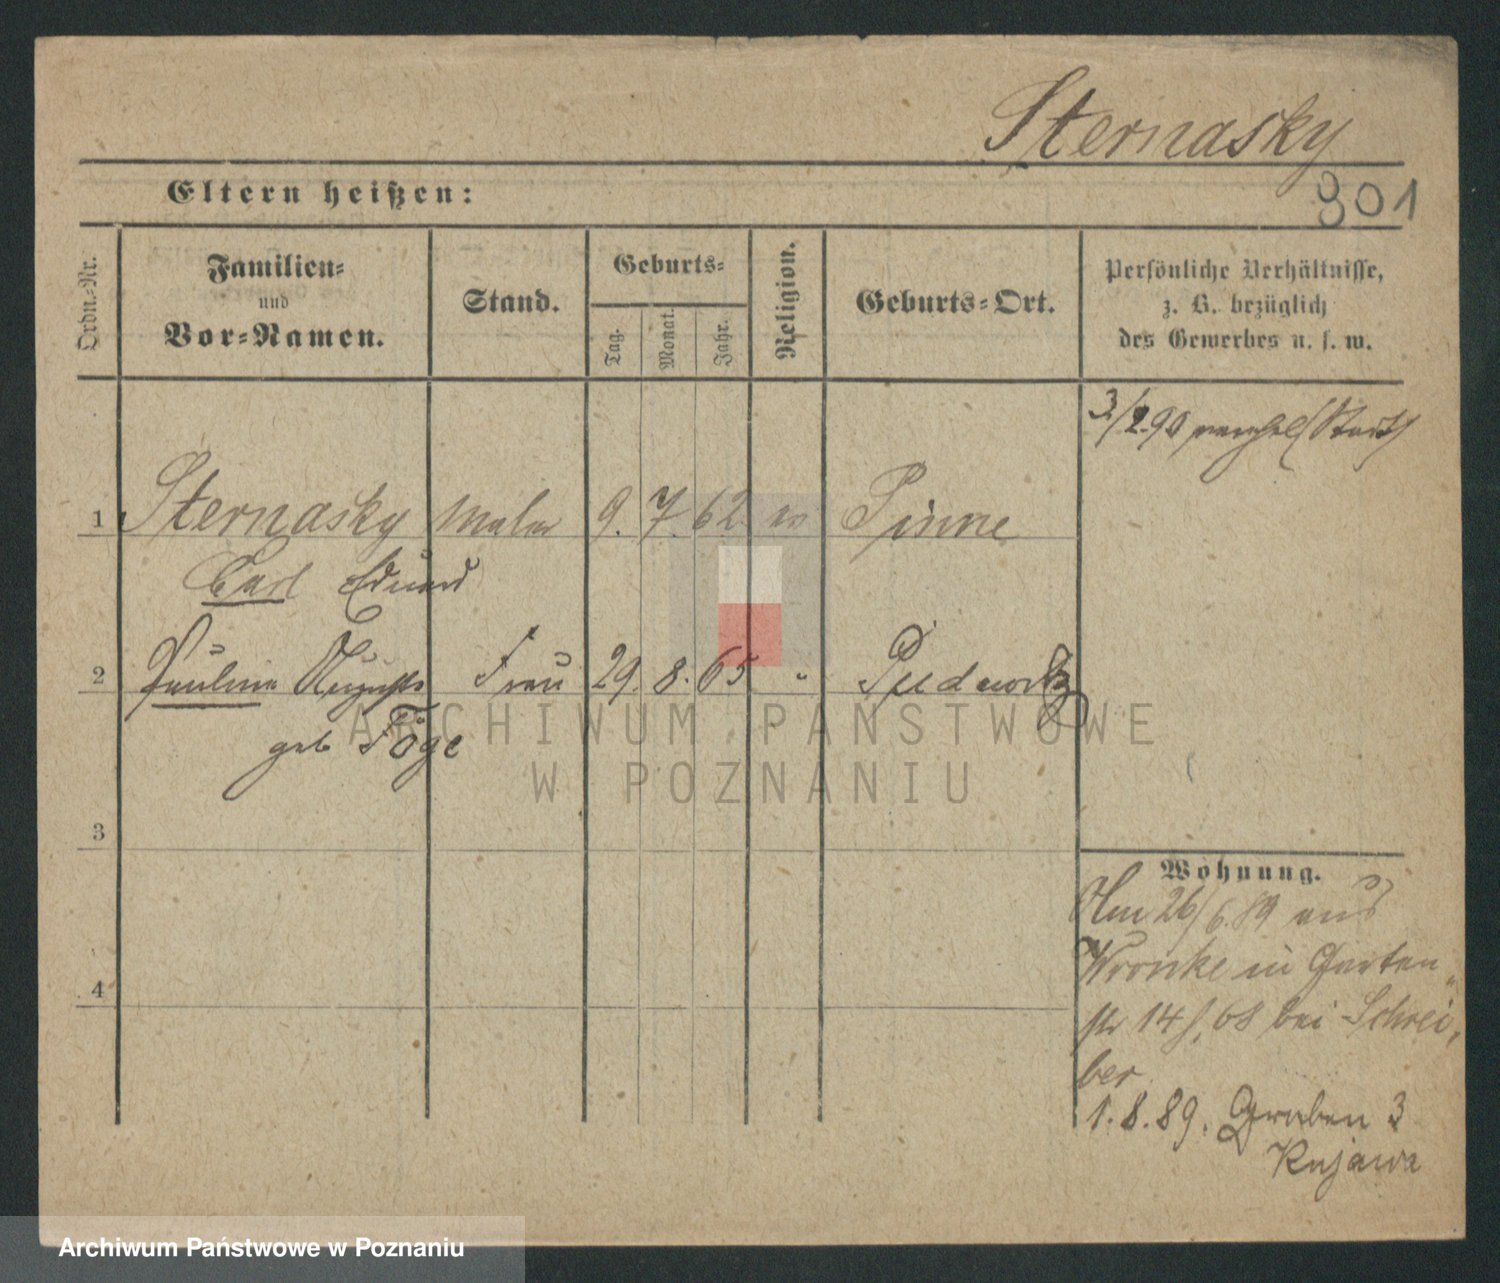 Sternasky
301
Eltern heißen:
Ordn.-Nr.
Familien-
und
Vor-Namen.
Stand.
Geburts-
Tag.
Monat.
Jahr.
Religion.
Geburts-Ort.
Persönliche Verhältnisse,
z. B. bezüglich
des Gewerbes u. s. w.
3/2.90
1 Sternasky Maler 9. 7. 62 ev Pinne
Carl Eduard
2 Pauline Auguste Frau 29. 8. 65 " Pudewitz
geb Föge
3
4
Wohnung.
Am 26/6.89 aus
Wronke in Garten
str 14 f, 68 bei Schrei,
ber
1.8.89. Graben 3
Kujawa
ARCHIWUM PAŃSTWOWE
W POZNANIU
Archiwum Państwowe w Poznaniu